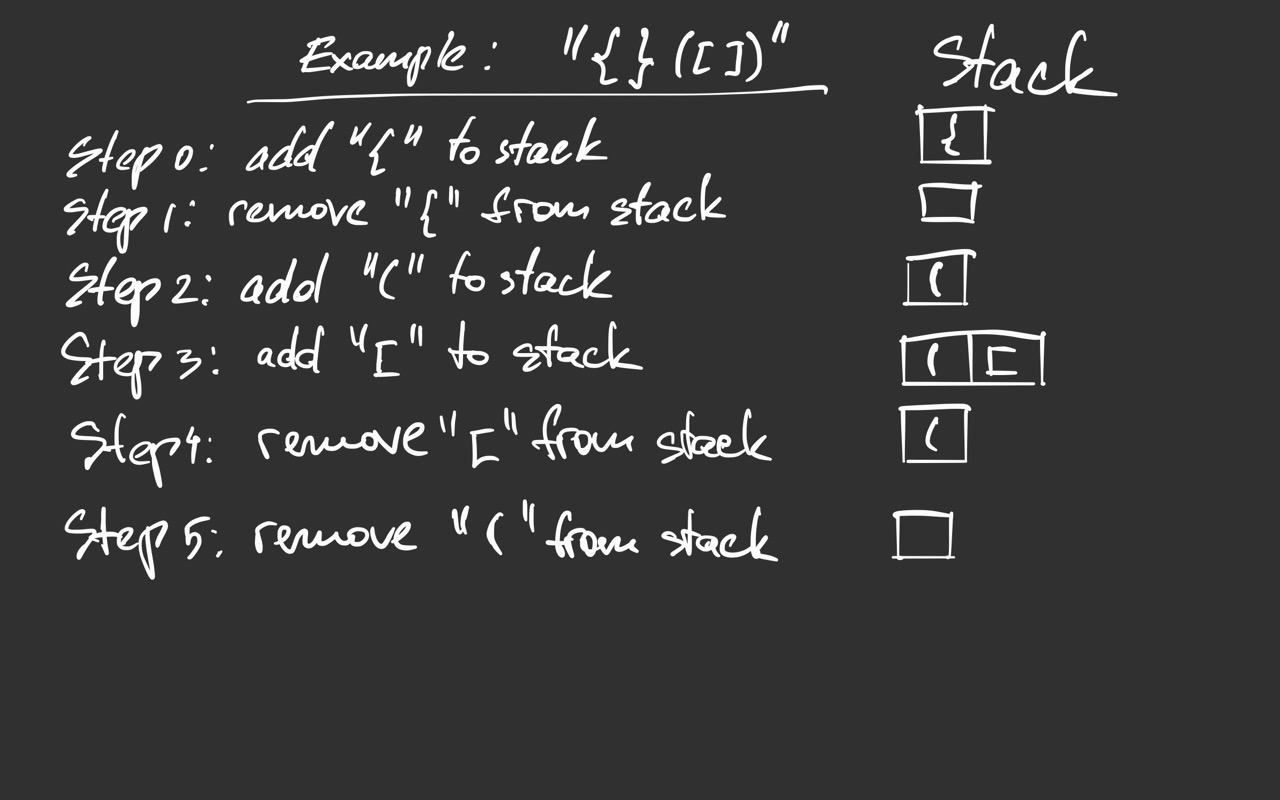 Example: "{}([])" Stack
Step 0: add "{" to stack {
Step 1: remove "{" from stack
Step 2: add "(" to stack (
Step 3: add "[" to stack ( [
Step 4: remove "[" from stack (
Step 5: remove "(" from stack